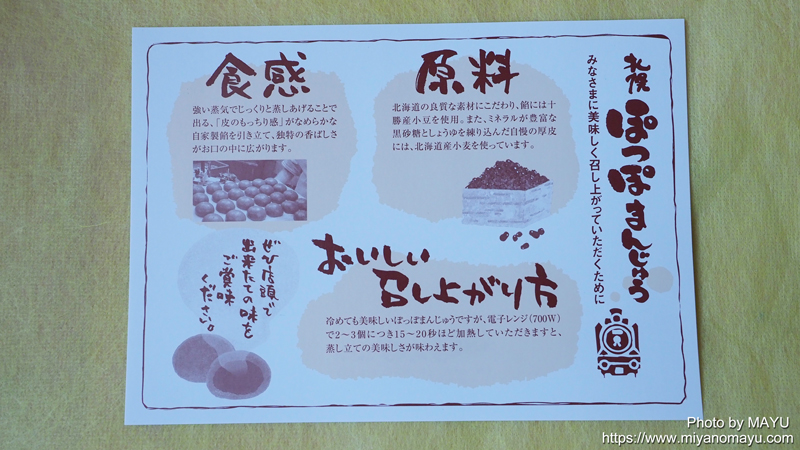 札幌
ぽっぽまんじゅう
みなさまに美味しく召し上がっていただくために
原料
北海道の良質な素材にこだわり、餡には十
勝産小豆を使用。また、ミネラルが豊富な
黒砂糖としょうゆを練り込んだ自慢の厚皮
には、北海道産小麦を使っています。
食感
強い蒸気でじっくりと蒸しあげることで
出る、「皮のもっちり感」がなめらかな
自家製餡を引き立て、独特の香ばしさ
がお口の中に広がります。
おいしい
召し上がり方
冷めても美味しいぽっぽまんじゅうですが、電子レンジ(700W)
で2〜3個につき15〜20秒ほど加熱していただきますと、
蒸し立ての美味しさが味わえます。
ぜひ店頭で
出来たての味を
ご賞味
ください。
Photo by MAYU
https://www.miyanomayu.com/